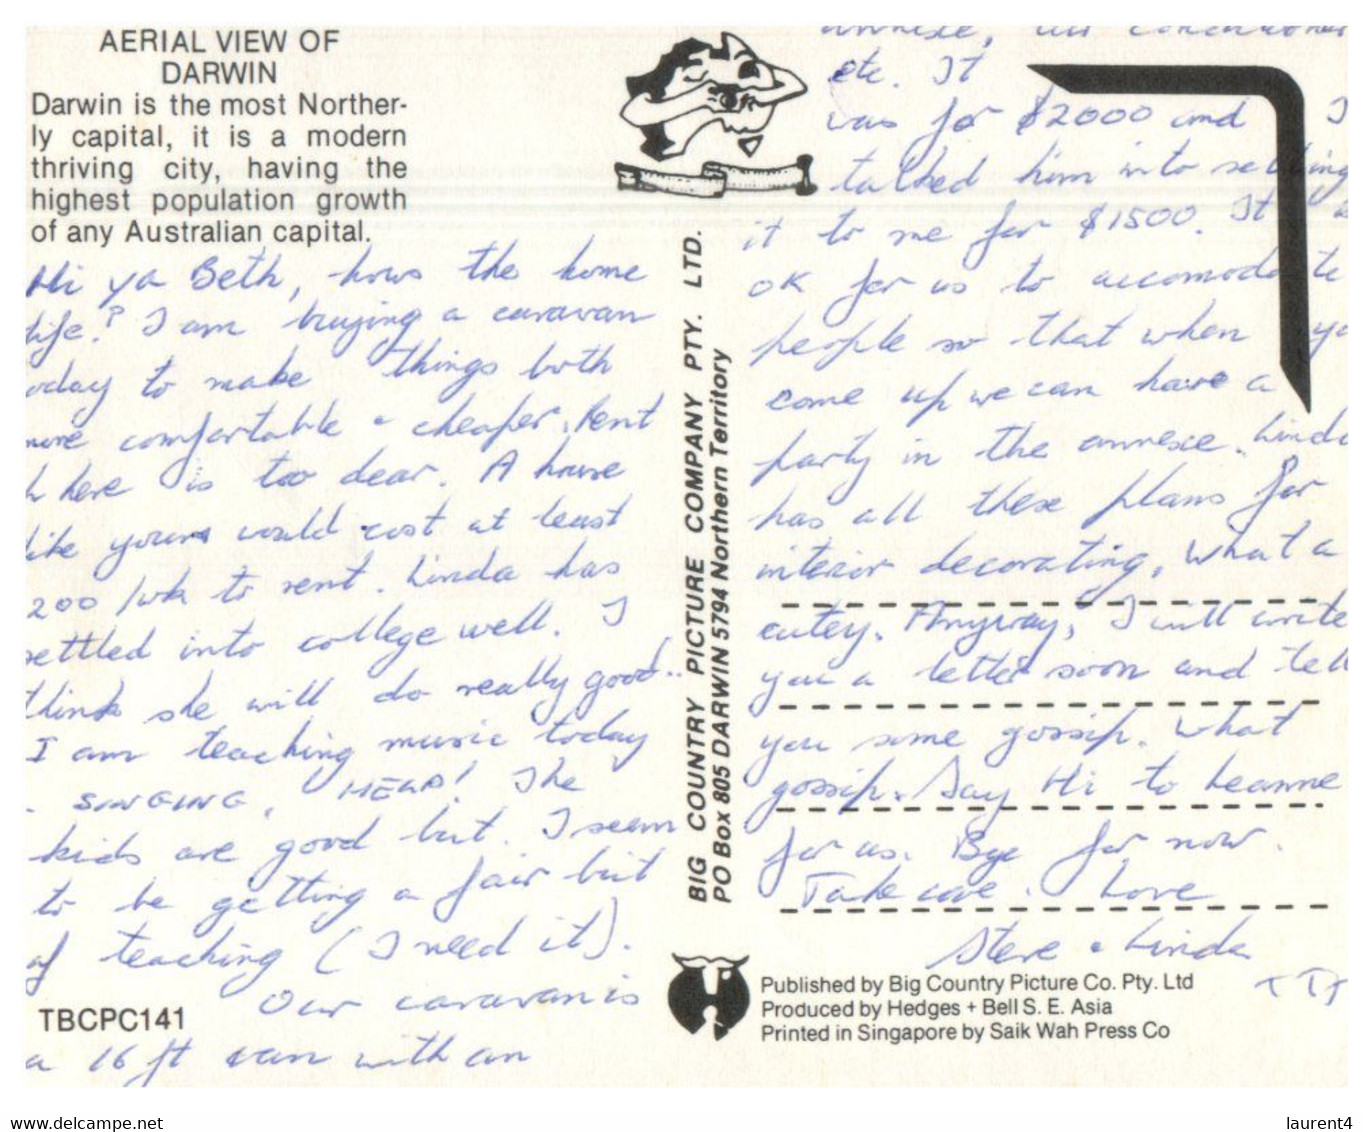 AERIAL VIEW OF
DARWIN
Darwin is the most Norther-
ly capital, it is a modern
thriving city, having the
highest population growth
of any Australian capital.
Hi ya Beth, hows the home
life? I am buying a caravan
today to make things both
more comfortable + cheaper. Rent
here is too dear. A house
like yours would cost at least
200/wk to rent. Linda has
settled into college well. I
think she will do really good..
I am teaching music today
- SINGING, HELP! The
kids are good but. I seem
to be getting a fair bit
of teaching (I need it).
Our caravan is
TBCPC141
a 16 ft van with an
BIG COUNTRY PICTURE COMPANY PTY. LTD.
PO Box 805 DARWIN 5794 Northern Territory
annexe, air conditioner
etc. It
was for $2000 and I
talked him into selling
it to me for $1500. It
OK for us to accomodate
people so that when you
come up we can have a
party in the annexe. Linda
has all these plans for
interior decorating, what a
cutey. Anyway, I will write
you a letter soon and tell
you some gossip. What
gossip. Say Hi to Leanne
for us. Bye for now.
Take care. Love
Steve + Linda
Published by Big Country Picture Co. Pty. Ltd
Produced by Hedges + Bell S. E. Asia
Printed in Singapore by Saik Wah Press Co
www.delcampe.net
laurent4